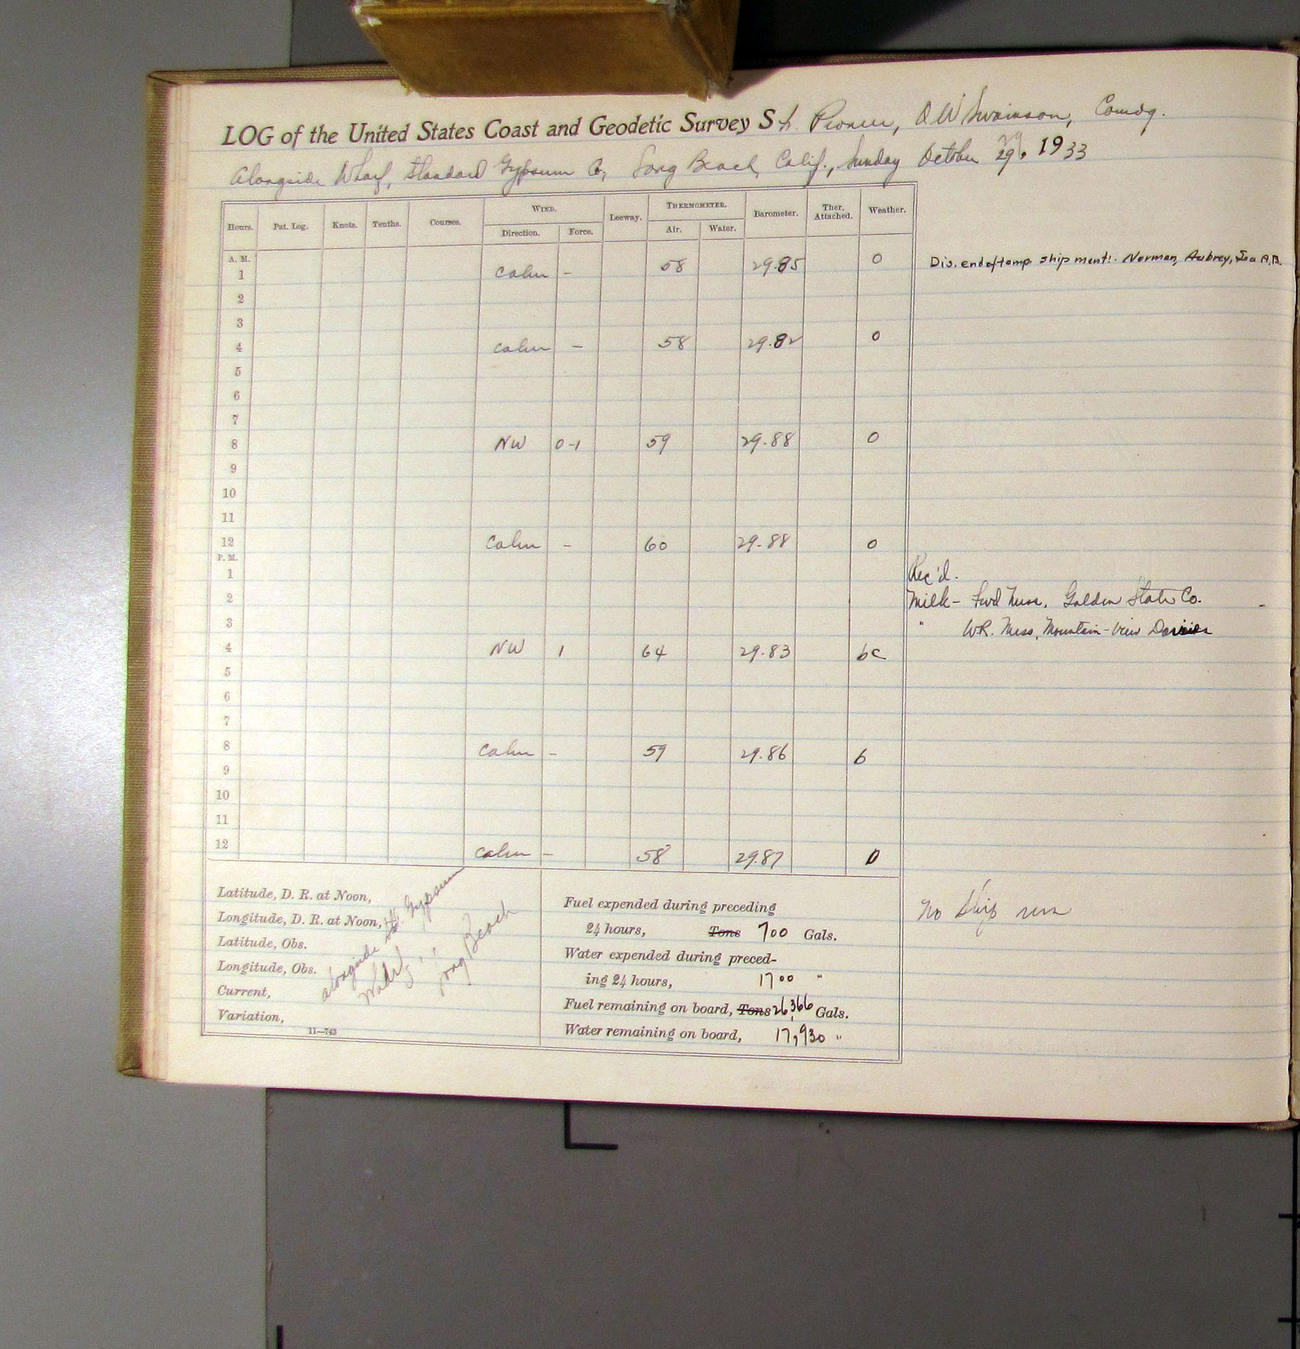 LOG of the United States Coast and Geodetic Survey Str. Pioneer, O W Swainson, Comdg.
Alongside Wharf, Standard Gypsum Co, Long Beach, Calif., Sunday October 29, 1933
Hours. Pat. Log. Knots. Tenths. Courses. WIND. Leeway. THERMOMETER. Barometer. Ther. Attached. Weather.
Direction. Force. Air. Water.
A. M.
1 calm - 58 29.85 0 Dis. end of temp shipment: Norman, Aubrey, A.B.
2
3
4 calm - 58 29.82 0
5
6
7
8 NW 0-1 59 29.88 0
9
10
11
12 Calm - 60 29.88 0
P. M.
1 Rec'd.
2 Milk - Fwd Mess, Golden State Co.
3 " W.R. Mess, Mountain-View Dairies
4 NW 1 64 29.83 bc
5
6
7
8 calm - 59 29.86 b
9
10
11
12 calm - 58 29.87 0
Latitude, D. R. at Noon,
Longitude, D. R. at Noon,
Latitude, Obs.
Longitude, Obs.
Current,
Variation,
alongside St. Gypsum
Wharf, Long Beach
11—743
Fuel expended during preceding
24 hours, Tons 700 Gals.
Water expended during preced-
ing 24 hours, 1700 "
Fuel remaining on board, Tons 26,366 Gals.
Water remaining on board, 17,930 "
No ship run